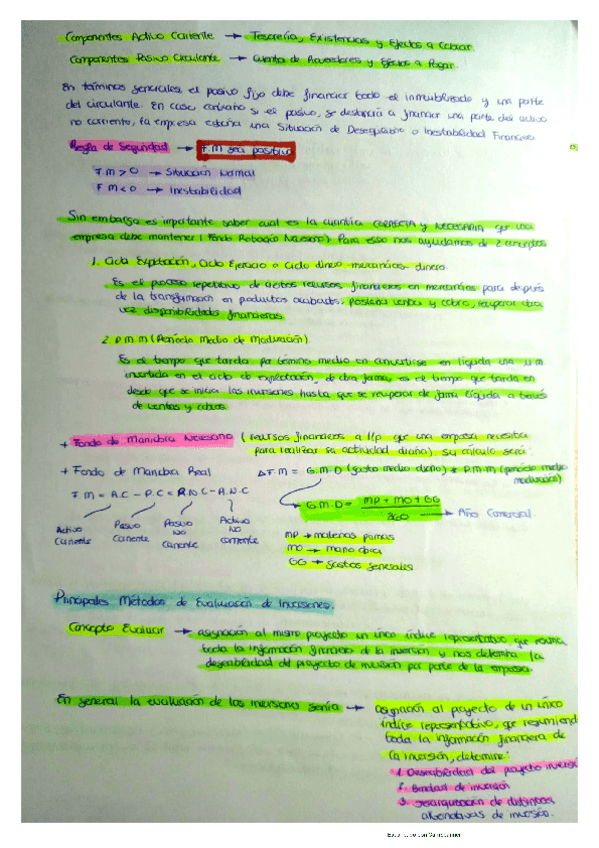 Componentes Activo Corriente → Tesorería, Existencias y Efectos a Cobrar
Componentes Pasivo Circulante → Cuenta de Proveedores y Efectos a Pagar.
En términos generales, el pasivo fijo debe financiar todo el inmovilizado y una parte
del circulante. En caso contrario si el pasivo, se destinaría a financiar una parte del activo
no corriente, la empresa estaría una Situación de Desequilibrio o Inestabilidad Financiera
Regla de Seguridad → F.M sea positivo
F.M > 0 → Situación Normal
F.M < 0 → Inestabilidad
Sin embargo es importante saber cual es la cuantía CORRECTA y NECESARIA que una
empresa debe mantener (Fondo Necesario) Para eso nos ayudamos de 2 conceptos
1. Ciclo Explotación, Ciclo Ejercicio o Ciclo dinero mercancías dinero.
Es el proceso repetitivo de ciertos recursos financieros en mercancías para después
de la transformación en productos acabados, posterior ventas y cobro, recuperar otra
vez disponibilidades financieras
2. P.M.M (Período Medio de Maduración)
Es el tiempo que tarda por término medio en convertirse en líquido una u.m
invertida en el ciclo de explotación, de otra forma, es el tiempo que tarda en
desde que se inicia las inversiones hasta que se recuperan de forma líquida a través
de ventas y cobros.
+ Fondo de Maniobra Necesario (recursos financieros a l/p que una empresa necesita
para realizar su actividad diaria) su cálculo será:
+ Fondo de Maniobra Real
F.M = G.M.D (gasto medio diario) * P.M.M (período medio
maduración)
F.M = A.C - P.C = P.N.C - A.N.C
G.M.D = MP + MO + GG / 360 → Año Comercial.
Activo Corriente
Pasivo Corriente
Pasivo NO Corriente
Activo NO corriente
MP → materias primas
MO → mano obra
GG → gastos generales
Principales Métodos de Evaluación de Inversiones.
Concepto Evaluar → asignación al mismo proyecto un único índice representativo que resuma
toda la información financiera de la inversión y nos determina la
deseabilidad del proyecto de inversión por parte de la empresa.
En general la evaluación de las inversiones sería → asignación al proyecto de un único
índice representativo, que resumiendo
toda la información financiera de
la inversión, determine:
1. Deseabilidad del proyecto inversión
2. Bondad de inversión
3. Jerarquización de distintas
alternativas de inversión.